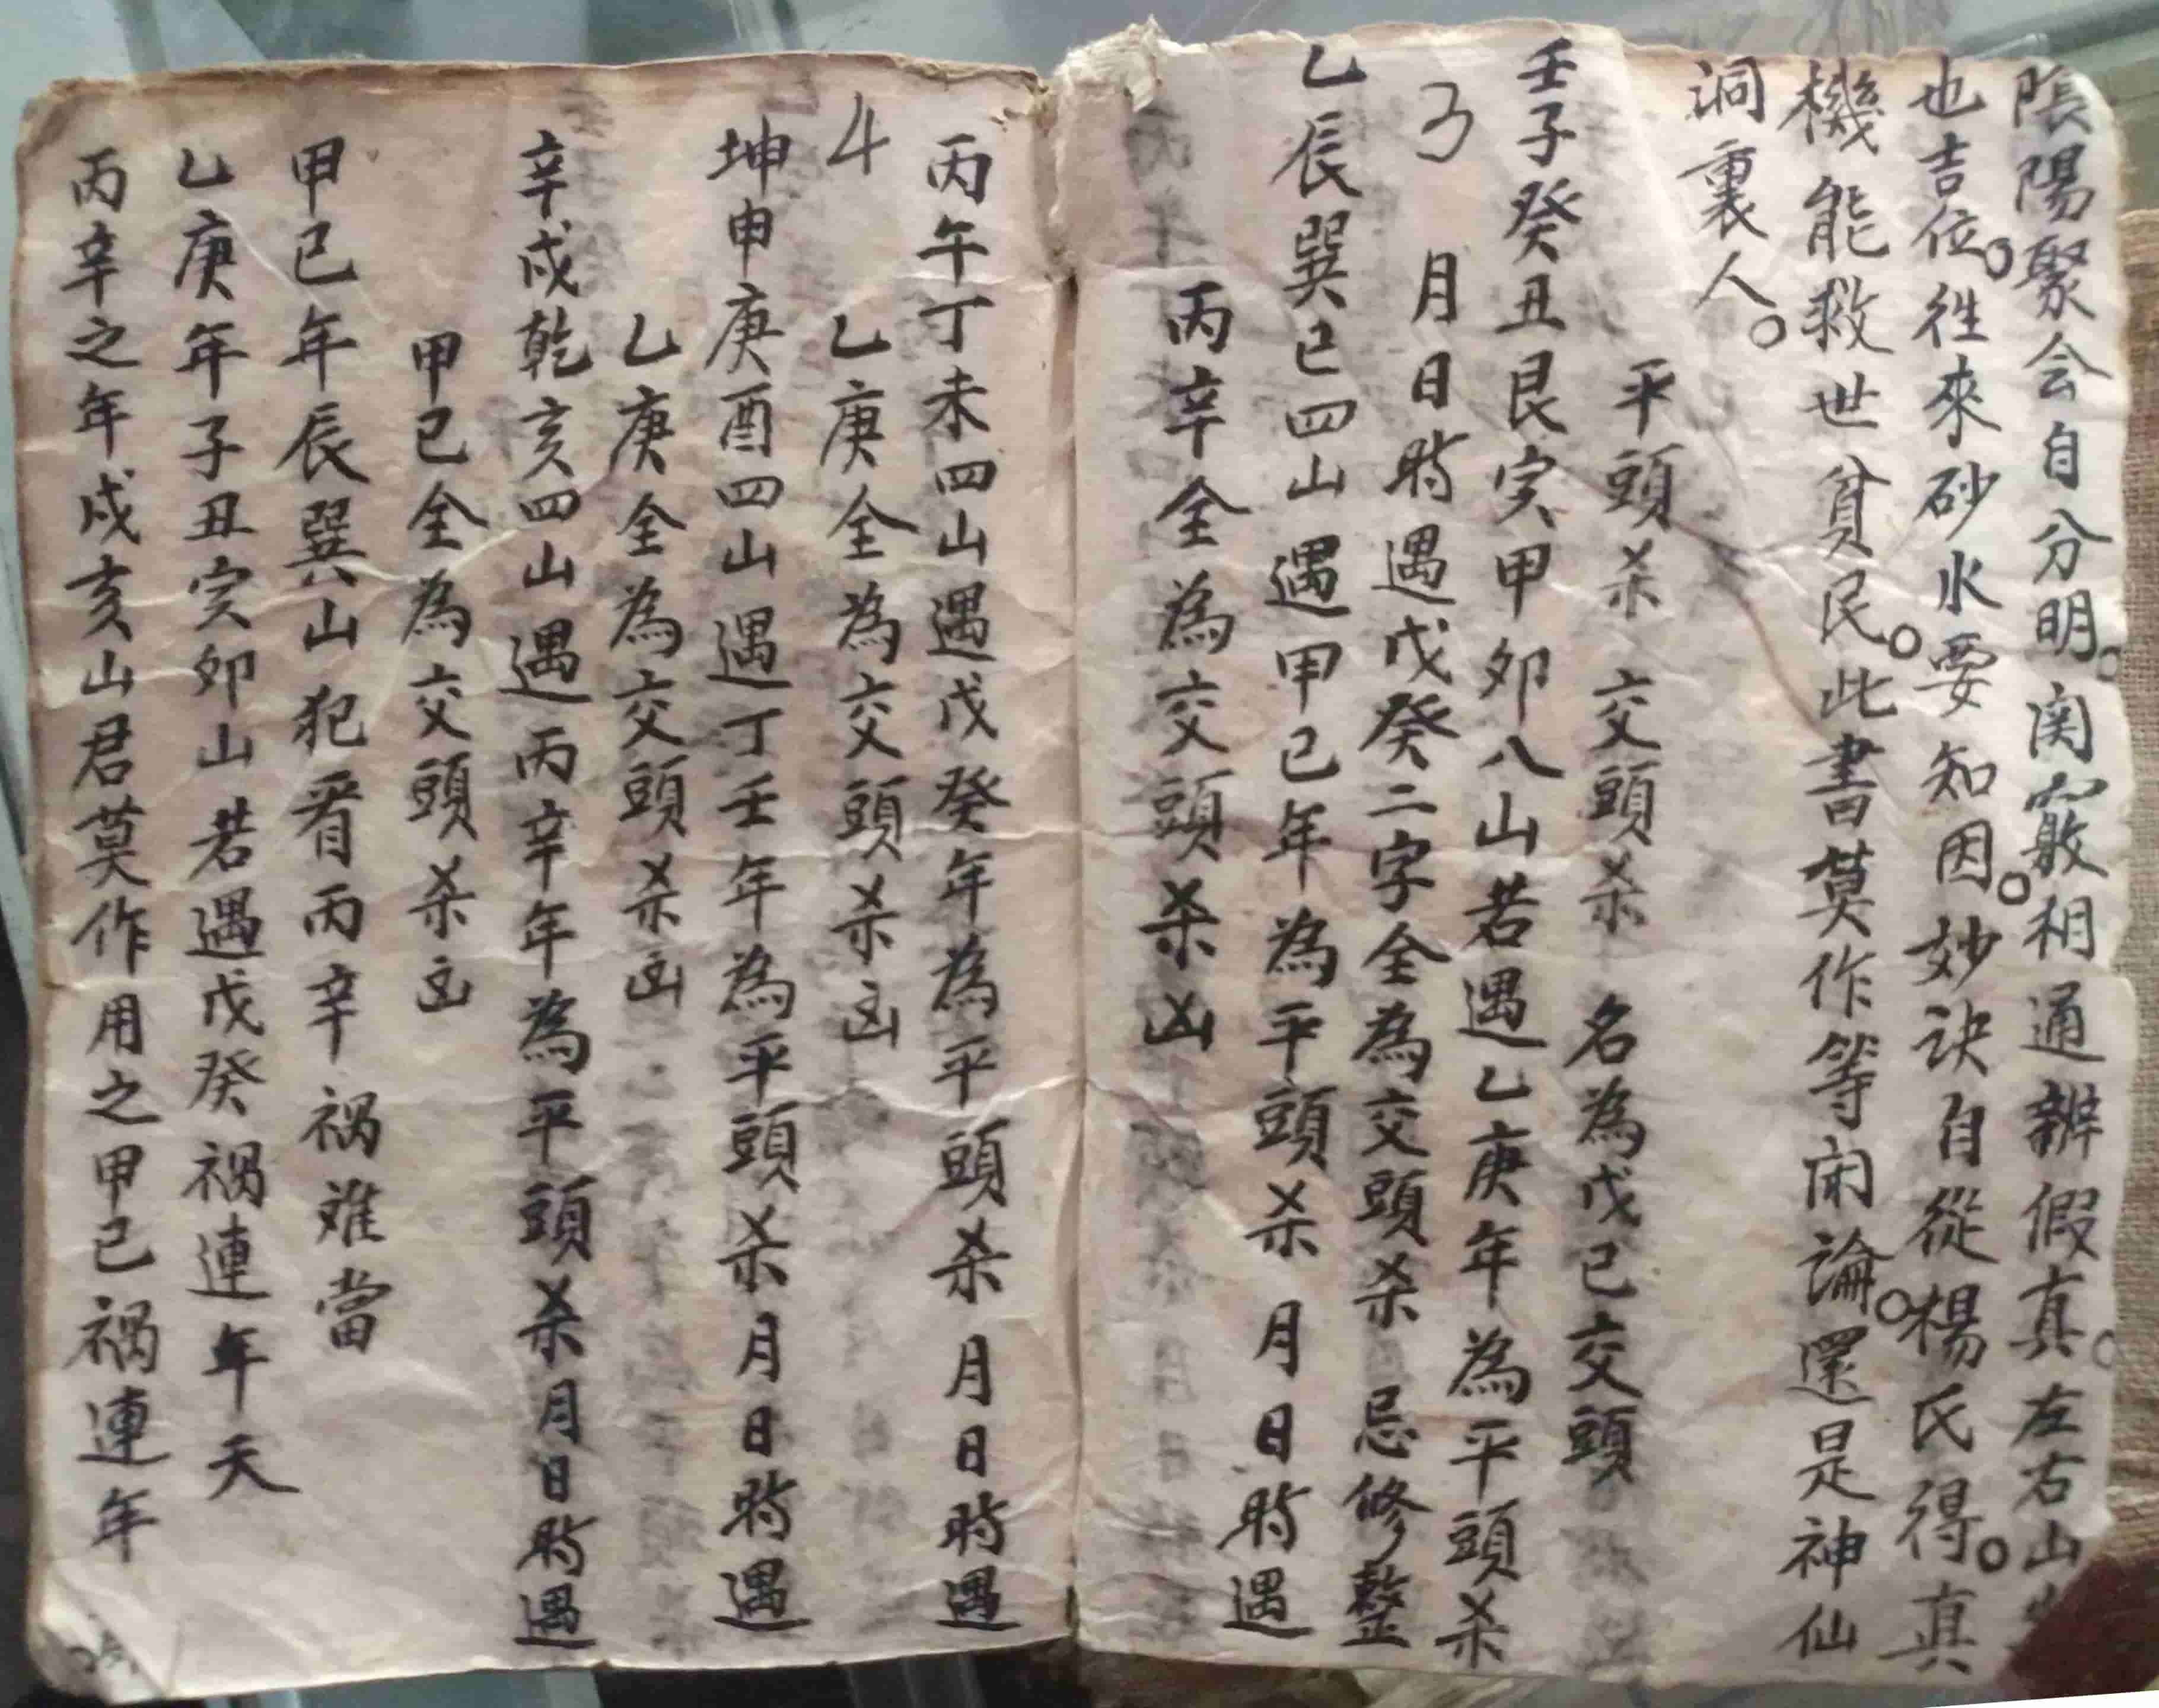 陰陽聚会自分明。関竅相通辨假真。左右山
也吉位。徃來砂水要知因。妙訣自從楊氏得。真
機能救世貧民。此書莫作等闲論。還是神仙
洞裏人。
平頭杀 交頭杀 名為戊己交頭
壬子癸丑艮寅甲卯八山若遇乙庚年為平頭杀
3 月日時遇戊癸二字全為交頭杀 忌修整
乙辰巽巳四山遇甲己年為平頭杀 月日時遇
丙辛全為交頭杀凶
丙午丁未四山遇戊癸年為平頭杀月日時遇
4 乙庚全為交頭杀凶
坤申庚酉四山遇丁壬年為平頭杀月日時遇
乙庚全為交頭杀凶
辛戌乾亥四山遇丙辛年為平頭杀月日時遇
甲己全為交頭杀凶
甲己年辰巽山犯看丙辛祸难當
乙庚年子丑寅卯山若遇戊癸祸連年天
丙辛之年戌亥山君莫作用之甲己祸連年